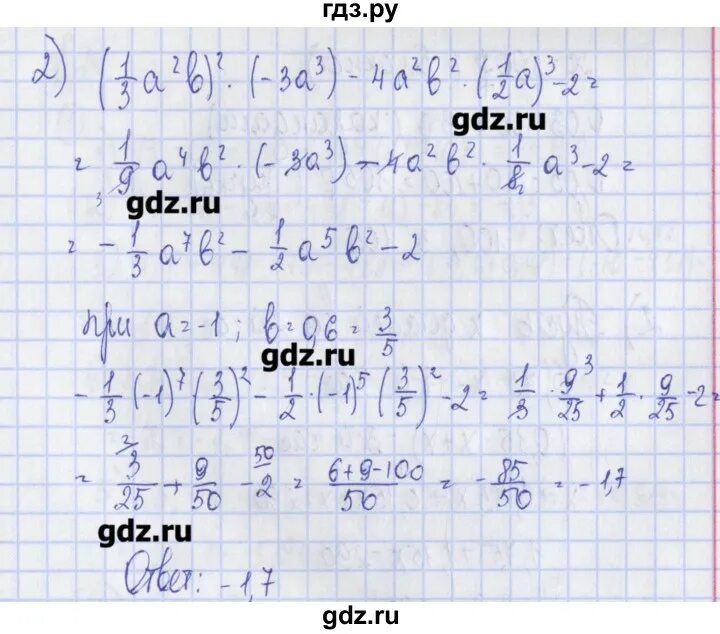 гдз.ру
2) (1/3 a²b)² · (-3a³) - 4a²b² · (1/2 a)³ - 2 =
gdz.ru
= 1/9 a⁴b² · (-3a³) - 4a²b² · 1/8 a³ - 2 =
3 2
gdz.ru
= - 1/3 a⁷b² - 1/2 a⁵b² - 2
при a = -1 ; b = 0,6 = 3/5
gdz.ru
- 1/3 (-1)⁷ (3/5)² - 1/2 · (-1)⁵ (3/5)² - 2 = 1/3 · 9/25 + 1/2 · 9/25 - 2 =
3
2 50
= 3/25 + 9/50 - 2 = (6+9-100)/50 = - 85/50 = -1,7
gdz.ru
Ответ: -1,7
gdz.ru